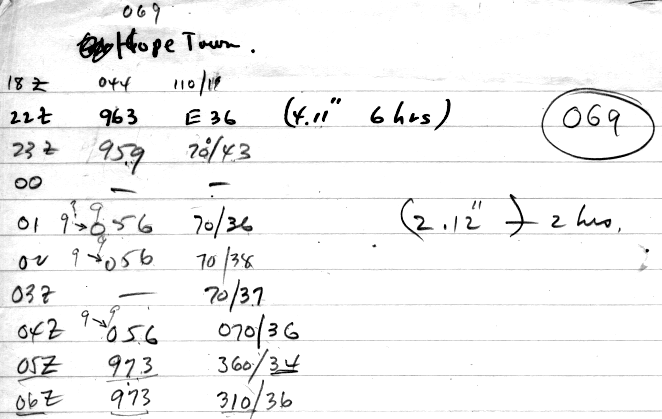 069
Hope Town.
18Z 044 110/19
22Z 963 E 36 (4.11" 6 hrs) 069
23Z 959 70/43
00 — —
01 9?→056 9 70/36 (2.12") 2 hrs.
02 9→056 9 70/38
03Z — 70/37
04Z 9→056 9 070/36
05Z 973 360/34
06Z 973 310/36